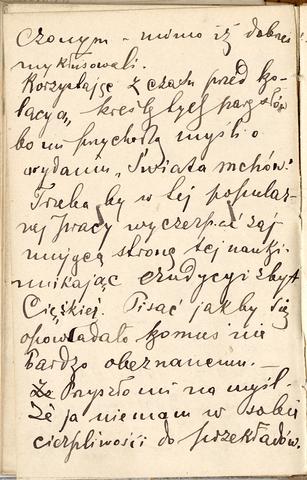 czonym - mimo iż dobrześ
my kłusowali.
Korzystając z czasu przed ko-
lacyą, kreślę tych parę słów
bo mi przychodzą myśli o
wydaniu "Świata mchów."
Trzeba by w tej popular-
nej pracy wyczerpać zaj
mującą stronę tej nauki.
unikając erudycyi zbyt
Ciężkiej. Pisać jak by się
opowiadało komuś nie
bardzo obeznanemu. -
Że Przyszło mi na myśl -
Że ja niemam w sobie
cierpliwości do przekładów.